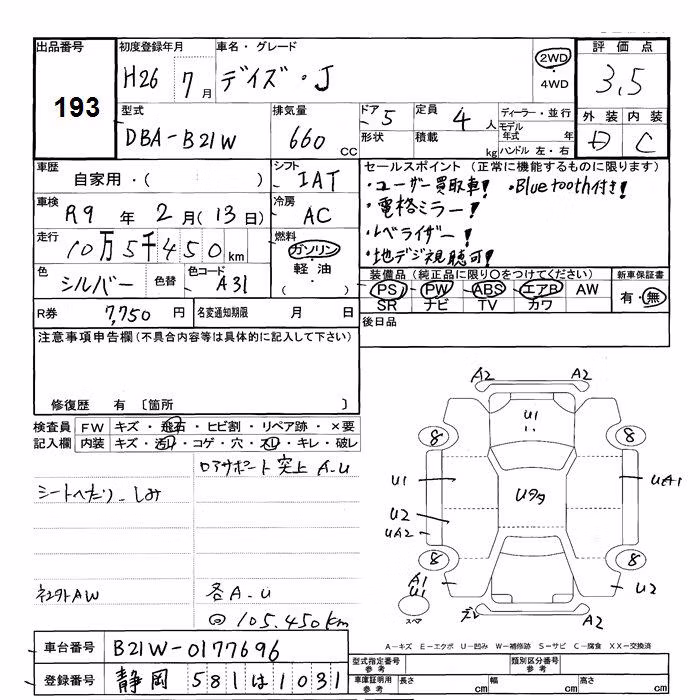 出品番号
193
初度登録年月
H26 7月
車名・グレード
デイズ・J
2WD
・
4WD
評価点
3.5
型式
DBA-B21W
排気量
660 CC
ドア 5
定員 4 人
形状
積載 kg
ディーラー・並行
モデル年式 年
ハンドル 左・右
外装 内装
D C
車歴
自家用・( )
シフト
IAT
セールスポイント (正常に機能するものに限ります)
・ユーザー買取車! ・Bluetooth付き!
・電格ミラー!
・レベライザー!
・地デジ視聴可!
車検
R9 年 2 月(13 日)
冷房
AC
走行
10万5千450km
燃料
ガソリン
・
軽油
・
( )
色
シルバー
色替
色コード
A31
装備品 (純正品に限り○をつけてください)
PS PW ABS エアB AW
SR ナビ TV カワ
新車保証書
有・無
R券 7,750 円
名変通知期限 月 日
後日品
注意事項申告欄(不具合内容等は具体的に記入して下さい)
修復歴 有 〔箇所 〕
検査員
記入欄
FW キズ・飛石・ヒビ割・リペア跡・×要
内装 キズ・汚れ・コゲ・穴・スレ・キレ・破レ
ロアサポート突上 A.U
シートへたり.しみ
ネジ外AW
各A.U
@105.450km
A2 A2
U1
8 8
U1
U9タ
UA1
U2
UA2
8 8
A1
U1
U2
スペア
デレ
A2
A-キズ E-エクボ U-凹み W-補修跡 S-サビ C-腐食 XX-交換済
車台番号
B21W-0177696
登録番号
静岡 581 は 1031
型式指定番号
参考
類別区分番号
参考
車庫証明用
参考
長さ cm
幅 cm
高さ cm